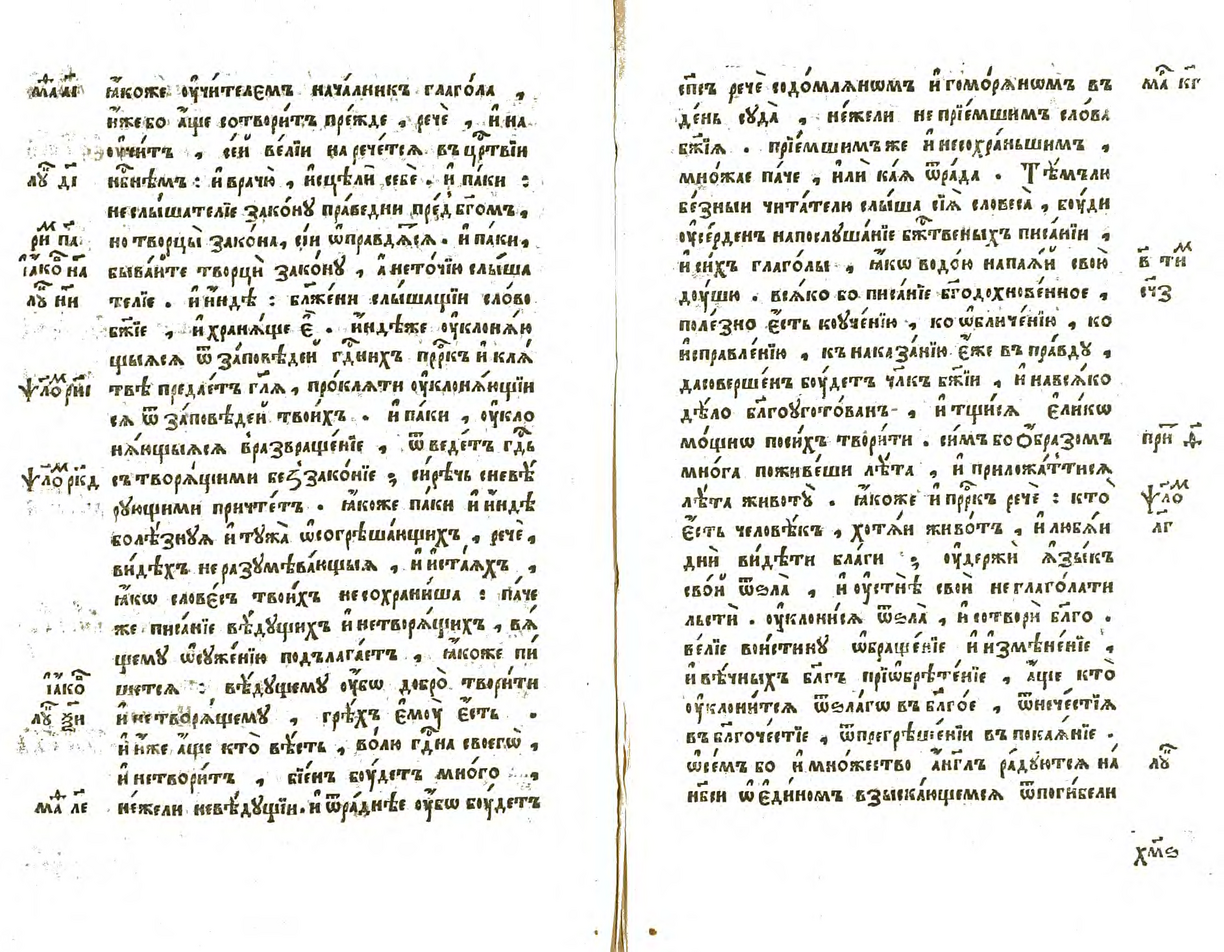 ꙗ҆́коже ᲂу҆чи́телемъ нача́лникъ глаго́ла ,
и҆́же бо а҆́ще сотвори́тъ пре́жде , речѐ , и҆ на
ᲂу҆чи́тъ , се́й ве́лїи нарече́тсѧ въ црⷭ҇твїи
нбⷭ҇нѣмъ : и҆ врачю̀ , и҆сцѣлѝ себѐ . и҆ па́ки :
не слы́шателїе зако́нꙋ пра́ведни пред̾ бг҃омъ ,
но творцы̀ зако́на , сі́и ѡ҆правдѧ́тсѧ . и҆ па́ки ,
быва́йте творцы̀ зако́нꙋ , а҆ не то́чїю слы́ша
телїе . и҆ и҆́ндѣ : бл҃же́ни слы́шащїи сло́во
бж҃їе , и҆ хранѧ́ще є҆̀ . и҆́ндѣже ᲂу҆клонѧ́ю
щыѧсѧ ѿ за́повѣдей гдⷭ҇нихъ прⷪ҇ркъ и҆ клѧ́
твѣ предае́тъ гл҃ѧ , про́клѧти ᲂу҆клонѧ́ющїи
сѧ ѿ за́повѣдей твои́хъ . и҆ па́ки , ᲂу҆кло
нѧ́ющыѧсѧ в̾развраще́нїе , ѿведе́тъ гдⷭ҇ь
съ творѧ́щими беззако́нїе ; си́рѣчь с невѣ́
рꙋющими причте́тъ . ꙗ҆́коже па́ки и҆ и҆́ндѣ
болѣ́знꙋѧ и҆ тꙋжа̀ ѡ҆ согрѣша́ющихъ , речѐ ,
ви́дѣхъ не разꙋмѣва́ющыѧ , и҆ и҆ста́ѧхъ ,
ꙗ҆́кѡ слове́съ твои́хъ не сохрани́ша : па́че
же писа́нїе вѣ́дꙋщихъ и҆ не творѧ́щихъ , вѧ́
щемꙋ ѡ҆сꙋже́нїю подлага́етъ , ꙗ҆́коже пи
шетсѧ : вѣ́дꙋщемꙋ ᲂу҆́бѡ добро̀ твори́ти
и҆ не творѧ́щемꙋ , грѣ́хъ є҆мꙋ̀ є҆́сть .
и҆ и҆́же а҆́ще кто̀ вѣ́сть , во́лю гдⷭ҇на своегѡ̀ ,
и҆ не твори́тъ , бїе́нъ бꙋ́детъ мно́го ,
не́жели невѣ́дꙋщїи . и҆ ѿра́днѣе ᲂу҆́бѡ бꙋ́детъ
сп҃съ речѐ содо́млѧнѡмъ и҆ гомо́рѧнѡмъ въ
де́нь сꙋда̀ , не́жели не прїе́мшимъ сло́ва
бж҃їѧ . прїе́мшимъ же и҆ не сохра́ньшимъ ,
мно́жае па́че , и҆лѝ ка́ѧ ѿра́да . Тѣ́мъ лю
бе́зныи чита́телю слы́ша сїѧ̀ словеса̀ , бꙋ́ди
ᲂу҆се́рденъ на послꙋша́нїе бжⷭ҇твеныхъ писа́нїи ,
и҆ си́хъ глаго́лы , ꙗ҆́кѡ водо́ю напаѧ́й свою̀
дꙋ́шю . всѧ́ко бо писа́нїе бг҃одохнове́нное ,
поле́зно є҆́сть ко ᲂу҆че́нїю , ко ѡ҆бличе́нїю , ко
и҆справле́нїю , къ наказа́нїю є҆́же въ пра́вдꙋ ,
да соверше́нъ бꙋ́детъ чл҃къ бж҃їи , и҆ на всѧ́ко
дѣ́ло бл҃гоꙋгото́ванъ , и҆ тщи́сѧ є҆ли́кѡ
мо́щнѡ по си́хъ твори́ти . си́мъ бо ѻ҆́бразомъ
мно́га поживе́ши лѣ́та , и҆ приложа́ттисѧ
лѣ́та животꙋ̀ . ꙗ҆́коже и҆ прⷪ҇ркъ речѐ : кто̀
є҆́сть человѣ́къ , хотѧ́и живо́тъ , и҆ любѧ́и
днѝ ви́дѣти бла́ги ; ᲂу҆держѝ ѧ҆зы́къ
сво́й ѿ ѕла̀ , и҆ ᲂу҆стнѣ̀ своѝ не глаго́лати
льстѝ . ᲂу҆клони́сѧ ѿ ѕла̀ , и҆ сотворѝ бл҃го .
ве́лїе вои́стинꙋ ѡ҆браще́нїе и҆ и҆змѣне́нїе ,
и҆ вѣ́чныхъ бл҃гъ прїѡбрѣ́тенїе , а҆́ще кто̀
ᲂу҆клони́тсѧ ѿ ѕла́гѡ въ бл҃го́е , ѿ нече́стїѧ
въ бл҃гоче́стїе , ѿ прегрѣше́нїи въ покаѧ́нїе .
ѡ҆ се́мъ бо и҆ мно́жество а҆́нг҃лъ ра́дꙋютсѧ на
нб҃си ѡ҆ є҆ди́номъ взыска́ющемсѧ ѿ поги́бели
лꙋ ді
ри па
і҆а́ко на
лꙋ ни
ѱало рні
ѱало ркд
і҆а́ко
ма ле
ма кг
в тим
сч҃з
ѱало
лг
лꙋ